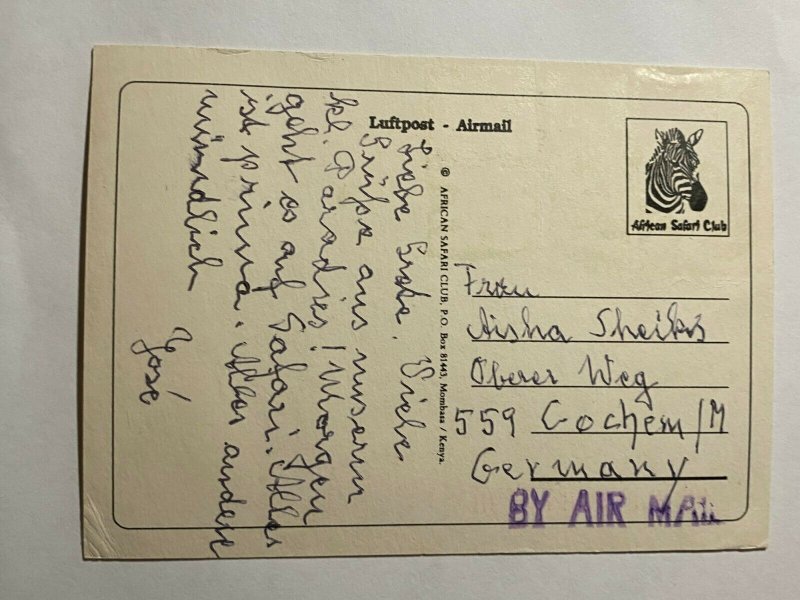 Luftpost - Airmail
African Safari Club
© AFRICAN SAFARI CLUB, P.O. Box 81443, Mombasa / Kenya.
Liebe Viele
Grüße aus unserm
kl. Paradies! Morgen
geht es auf Safari. Alles
ist prima. Alles andere
mündlich
José
Frau
Aisha Sheikh
Oberer Weg
559 Cochem/M
Germany
BY AIR MAIL